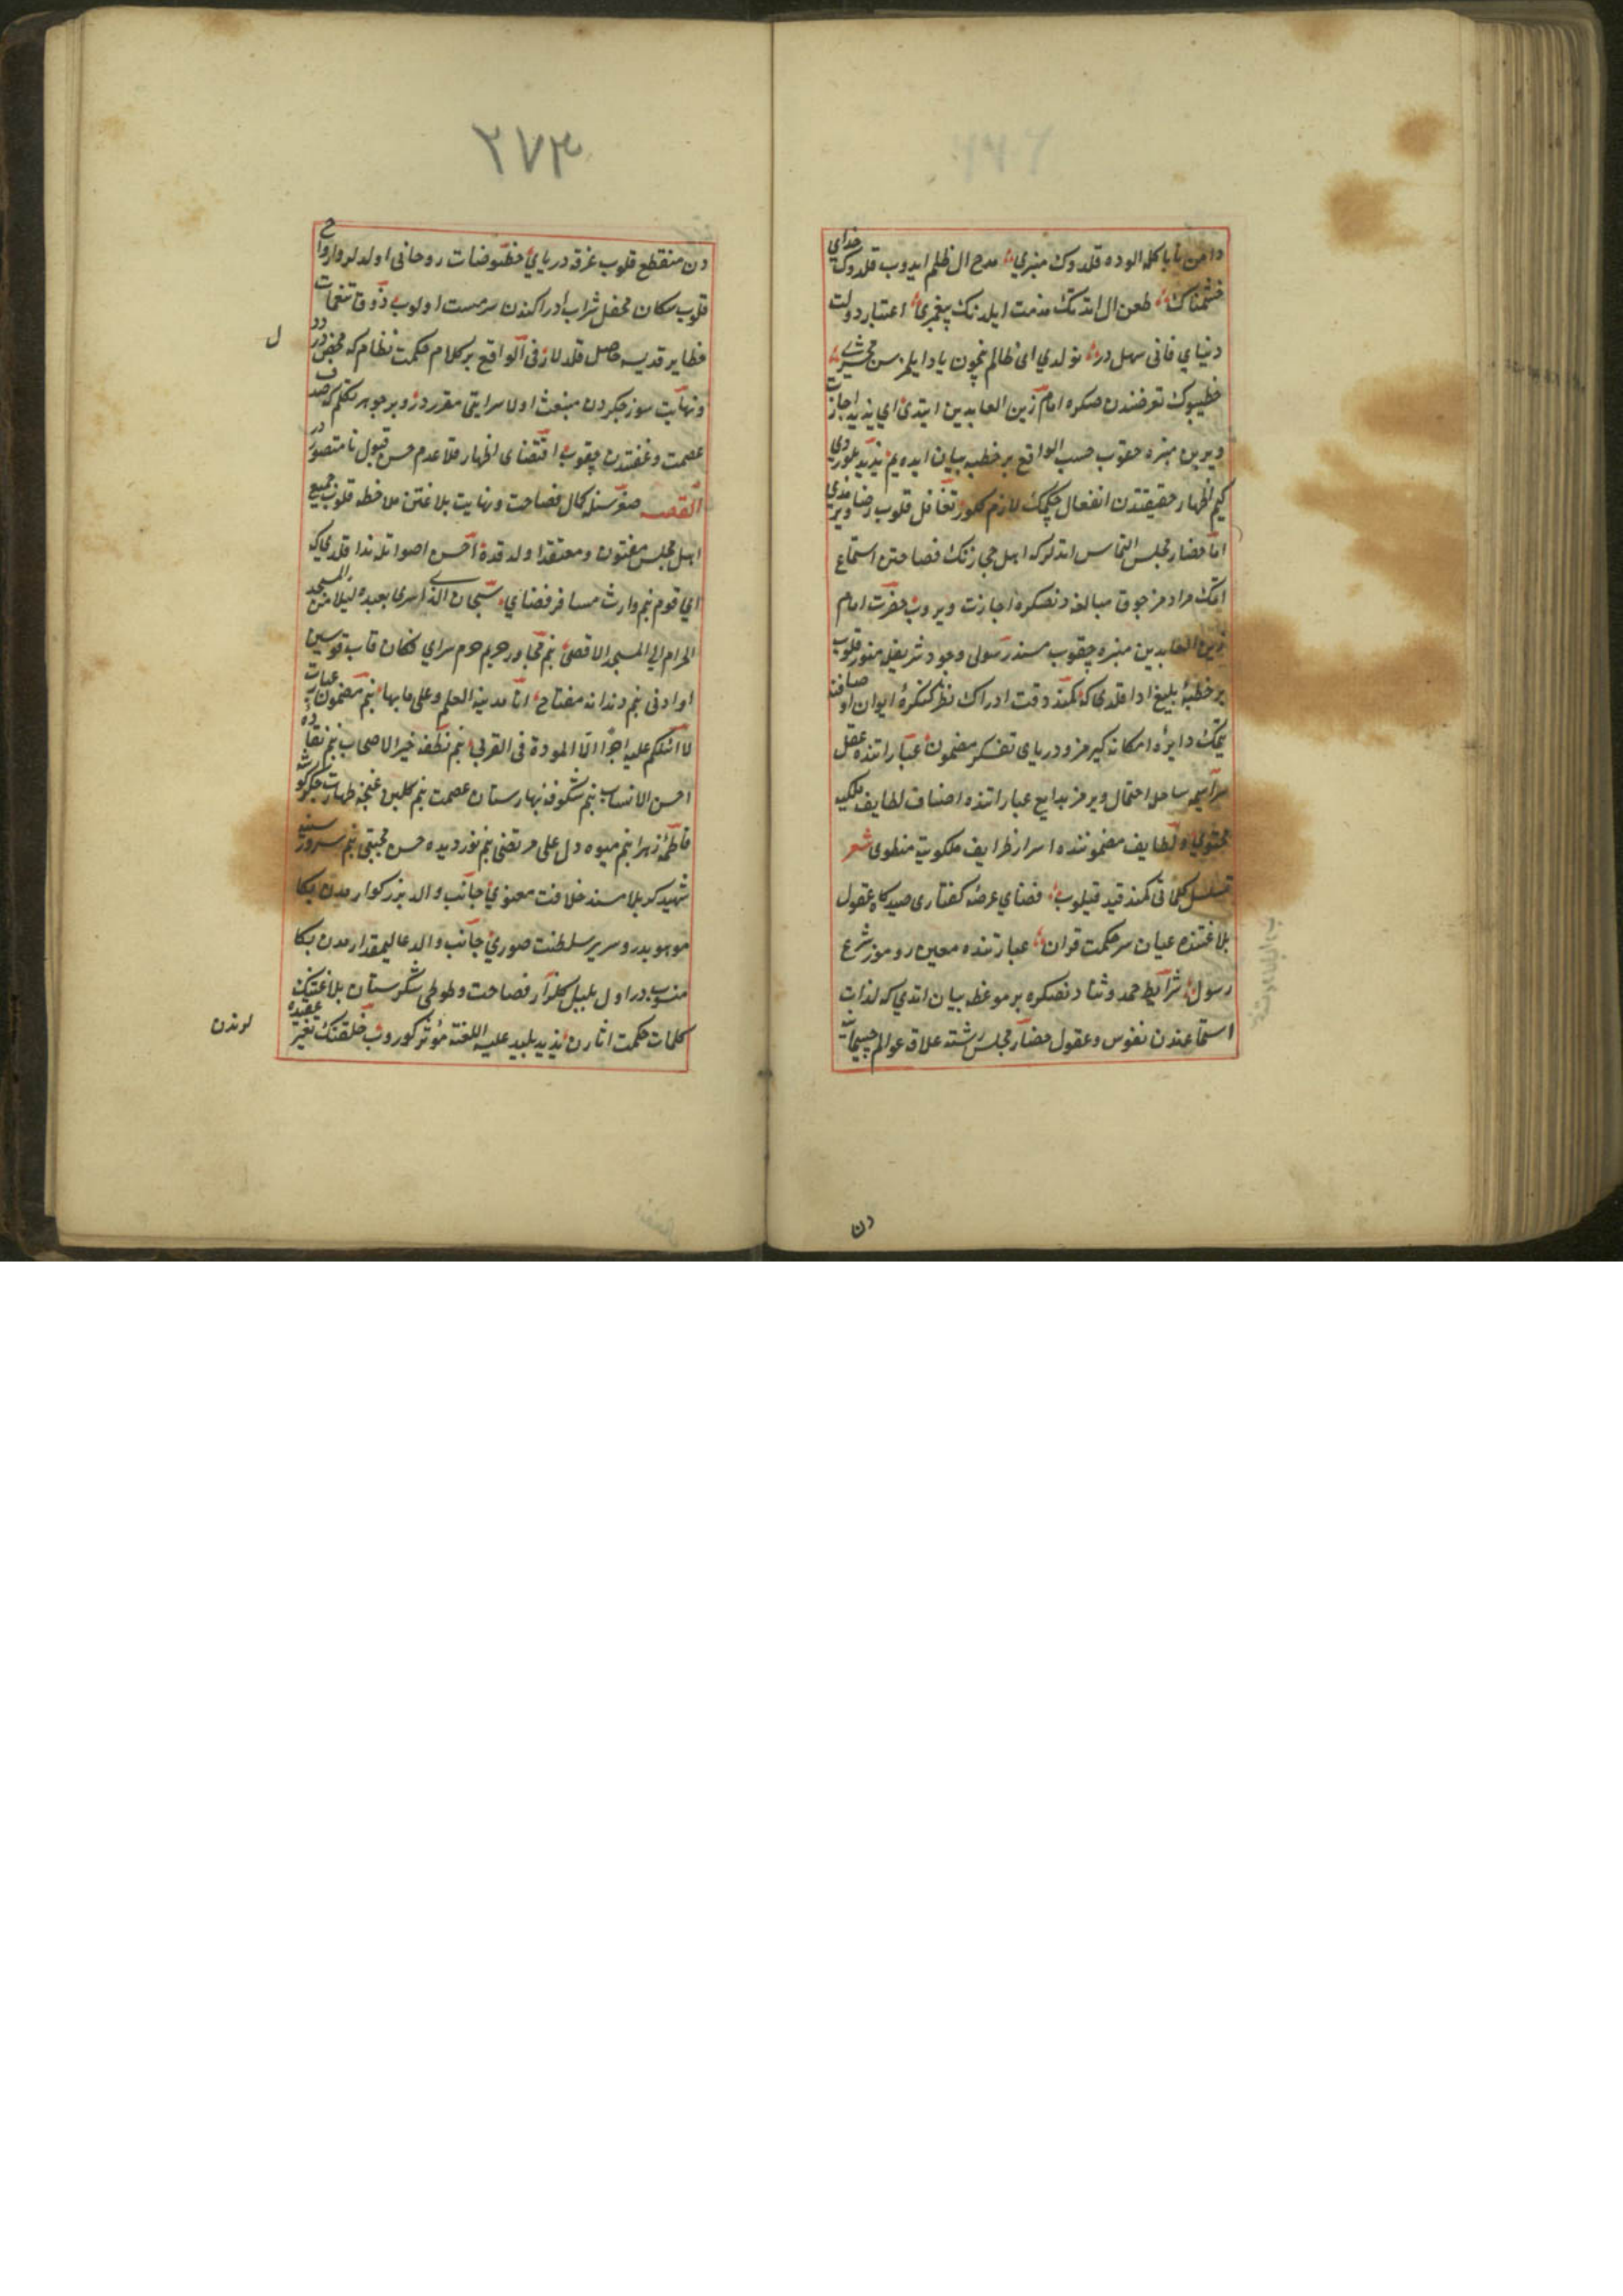 دامن ناپاكله الوده قلدوك منبری مدح ال ظلم ایدوب قلدوك خدای
خشمناك طعن ال ایتدنك مذمت ایلدنك پیغمبری اعتبار دولت
دنیای فانی سهل در نولدی ای ظالم نچون یاد ایلمزسن محشری
خطیبوك تعرضندن صكره امام زین العابدین ایتدی ای یزید اجازت
ویر بن منبره چقوب حسب الواقع بر خطبه بیان ایده یم یزید بلوردی
كیم اظهار حقیقتدن انفعال چكمك لازم كلور تغافل قلوب رضا ویرمدی
اما حضار مجلس التماس ایتدلر كه اهل حجازنك فصاحتن استماع
ایتمك مرادمز چوق مبالغه دنصكره اجازت ویروب حضرت امام
زین العابدین منبره چقوب مسند رسولی وجود شریفله منور قلوب
بر خطبهٔ بلیغ ادا قلدی كه كمند دقت ادراك نظر كنكرهٔ ایوان اوصافنه
یتمك دایرهٔ امكانه كیرمز ودریای تفكر مضمون عباراتنده عقل
سراسیمه ساحل احتمال ویرمز بدایع عباراتنده اصناف لطایف ملكیه
محتوی ولطایف مضموننده اسرار ظرایف ملكوتیه منطوی شعر
تسلسل كلماتی كمند قید قیلوب فضای عرصهٔ كفتاری صیدكاه عقول
بلاغتنده عیان سر حكمت قران عبارتنده معین رموز شرع
رسول شرایط حمد وثنادنصكره بر موعظه بیان ایتدی كه لذات
استماعندن نفوس وعقول حضار مجلس رشته علاقه عوالم جسمانیت
دن
٢٧٣
دن منقطع قلوب غرقه دریای حظوضات روحانی اولدیلر وارواح
قلوب سكان محفل شراب ادراكندن سرمست اولوب ذوق نغمات
حظایر قدسیه حاصل قلدیلار فی الواقع بر كلام حكمت نظام كه محض درد
ل
ونهایت سوز جكردن منبعث اولا سرایتی مقرردر وبر جوهر تكلم كه صدف
عصمت وعفتدن چقوب اقتضای اظهار قلا عدم حسن قبول نامتصوردر
القصه صغر سنله كمال فصاحت ونهایت بلاغتن ملاحظه قلوب جمیع
اهل مجلس مفتون ومعتقد اولدقده احسن اصواتله ندا قلدی كه
ای قوم بنم وارث مسافر فضای سبحان الذی اسری بعبده لیلا من المسجد
الحرام الی المسجد الاقصی بنم مجاور حریم حرم سرای فكان قاب قوسین
او ادنی بنم دندانه مفتاح انا مدینة العلم وعلی بابها بنم مضمون عبارت
لا اسئلكم علیه اجرا الا المودة فی القربی بنم نطفه خیر الاصحاب بنم نقاوهٔ
احسن الانساب بنم شكوفه بهارستان عصمت بنم كلبن غنچه طهارت جكر كوشه
فاطمهٔ زهرا بنم میوه دل علی مرتضی بنم نور دیده حسن مجتبی بنم سرور سینه
شهید كربلا مسند خلافت معنوی جانب والد بزركواردن بكا
موهوبدر وسریر سلطنت صوری جانب والد عالیمقداردن بكا
منسوبدر اول بلبل كلزار فصاحت وطوطی شكرستان بلاغتنك
كلمات حكمت اثارن یزید پلید علیه اللعنة مؤثر كوروب خلقنك تغیر عقیده
لرندن